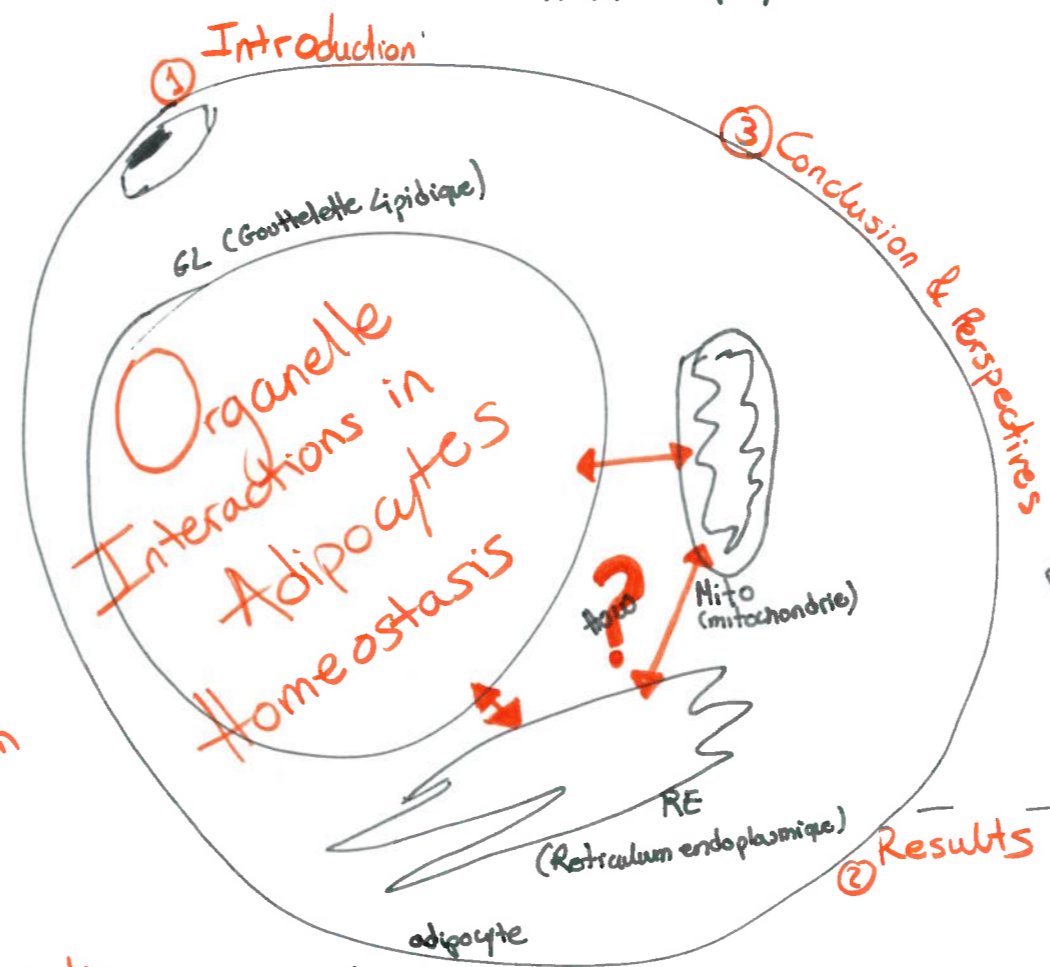 ① Introduction
③ Conclusion & Perspectives
GL (Gouttelette Lipidique)
Organelle
Interactions in
Adipocytes
Homeostasis
?
Mito
(mitochondrie)
RE
(Reticulum endoplasmique)
② Results
adipocyte